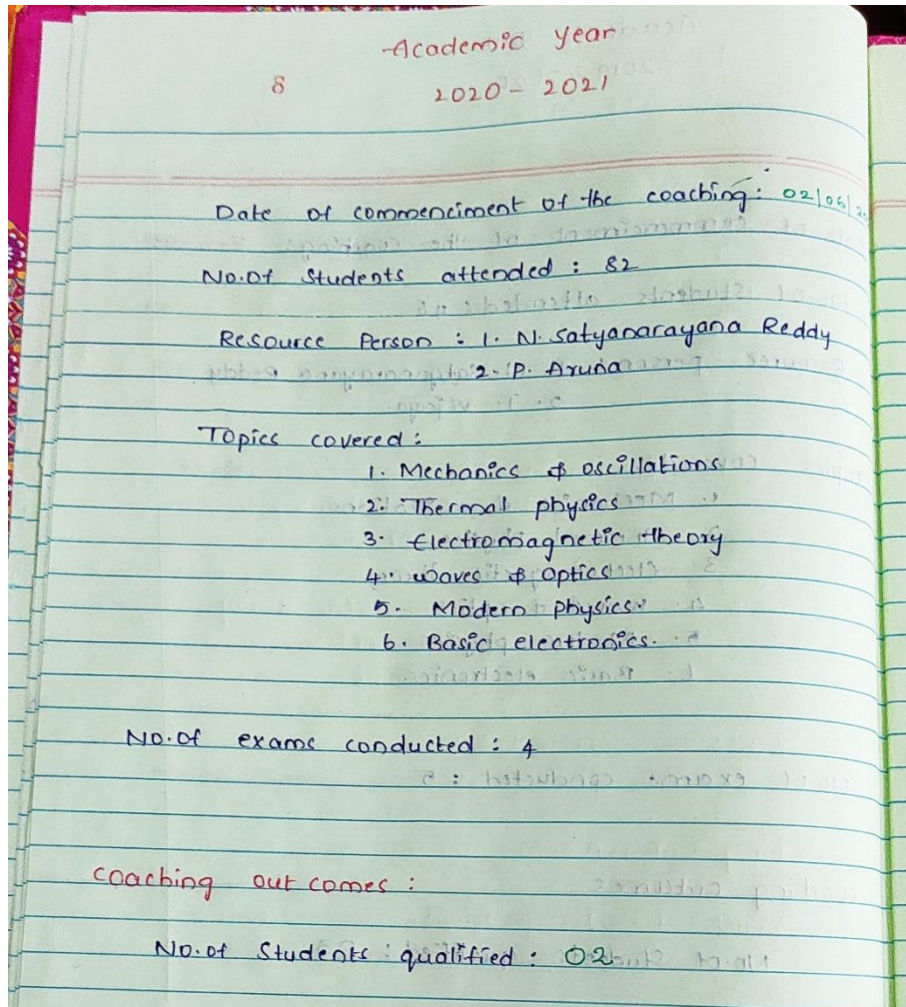 Academic year
8 2020 - 2021
Date of commenciment of the coaching: 02/06/2
No.of Students attended : 82
Resource Person : 1. N. Satyanarayana Reddy
2. P. Aruna
Topics covered :
1. Mechanics & oscillations
2. Thermal physics
3. Electromagnetic theory
4. Waves & Optics
5. Modern physics.
6. Basic electronics.
No.of exams conducted : 4
Coaching out comes :
No.of Students qualified : 02